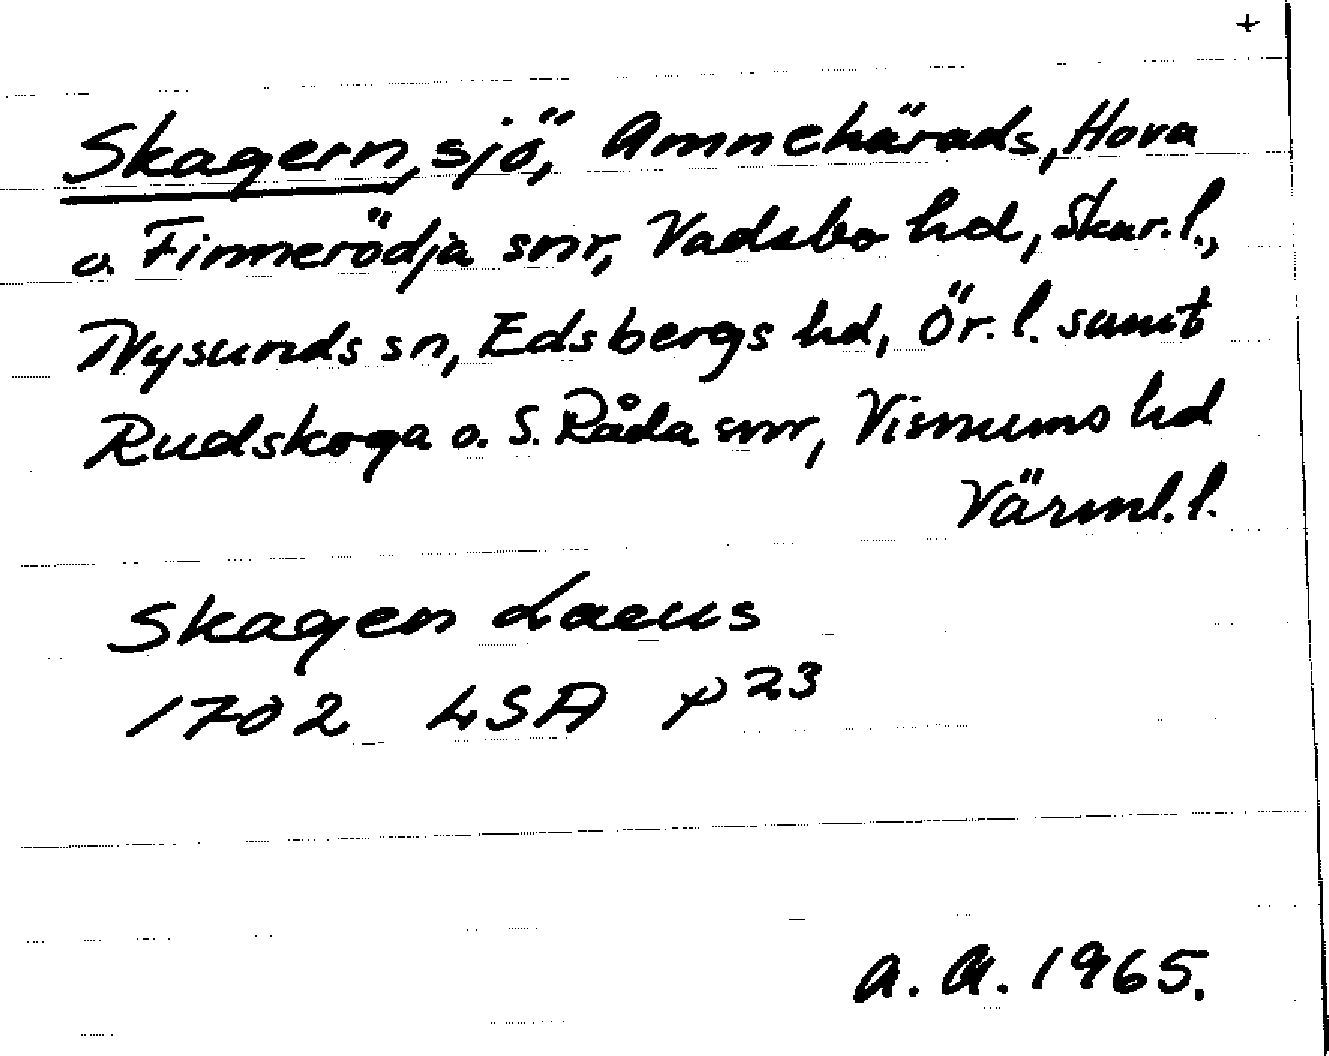 +
Skagern, sjö, Amnehärads, Hova
o. Finnerödja snr, Vadsbo hd, Skar. l.,
Nysunds sn, Edsbergs hd, Ör. l. samt
Rudskoga o. S. Råda snr, Visnums hd
Värml. l.
Skagen Lacus
1702 LSA p 23
A. A. 1965.